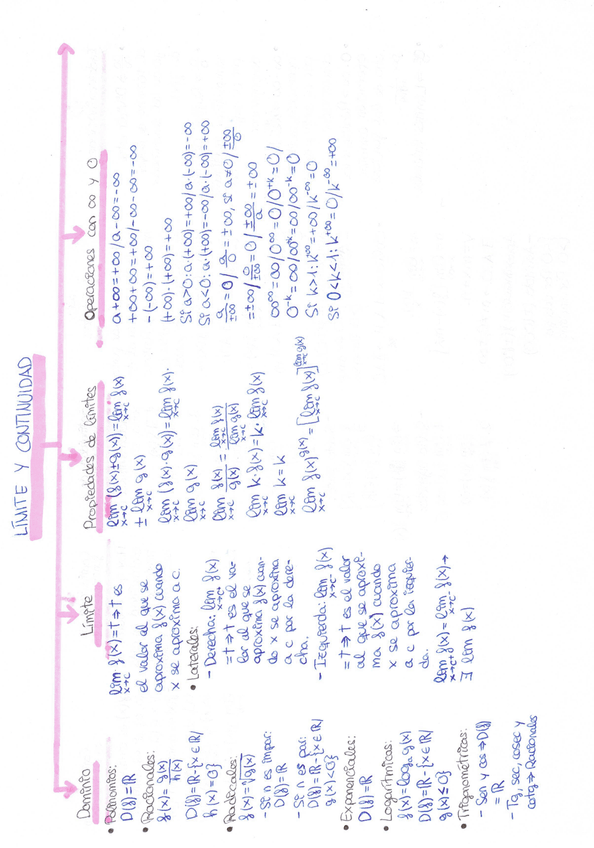 LÍMITE Y CONTINUIDAD
Dominio
• Polinomios:
D(f)=ℝ
• Racionales:
f(x)= g(x)/h(x)
D(f)=ℝ-{x∈ℝ/
h(x)=0}
• Radicales:
f(x)=ⁿ√g(x)
- Si n es impar:
D(f)=ℝ
- Si n es par:
D(f)=ℝ-{x∈ℝ/
g(x)<0}
• Exponenciales:
D(f)=ℝ
• Logarítmicas:
f(x)=logₐ g(x)
D(f)=ℝ-{x∈ℝ/
g(x)≤0}
• Trigonométricas:
- Sen y cos ⇒ D(f)
=ℝ
- Tg, sec, cosec y
cotg ⇒ Racionales
Límite
lim x→c f(x)=t ⇒ t es
el valor al que se
aproxima f(x) cuando
x se aproxima a c.
• Laterales:
- Derecha: lim x→c⁺ f(x)
=t ⇒ t es el va-
lor al que se
aproxima f(x) cuan-
do x se aproxima
a c por la dere-
cha.
- Izquierda: lim x→c⁻ f(x)
=t ⇒ t es el valor
al que se aproxi-
ma f(x) cuando
x se aproxima
a c por la izquier-
da.
lim x→c⁺ f(x)= lim x→c⁻ f(x) →
∃ lim x→c f(x)
Propiedades de límites
lim x→c (f(x)±g(x))=lim x→c f(x)
± lim x→c g(x)
lim x→c (f(x)·g(x))=lim x→c f(x)·
lim x→c g(x)
lim x→c f(x)/g(x) = lim x→c f(x)/lim x→c g(x)
lim x→c k·f(x)=k·lim x→c f(x)
lim x→c k=k
lim x→c f(x)^g(x) = [lim x→c f(x)]^lim x→c g(x)
Operaciones con ∞ y 0
a+∞=+∞/a-∞=-∞
+∞+∞=+∞/-∞-∞=-∞
-(-∞)=+∞
(+∞)·(+∞)=+∞
Si a>0: a·(+∞)=+∞/a·(-∞)=-∞
Si a<0: a·(+∞)=-∞/a·(-∞)=+∞
a/±∞=0/ a/0=±∞, si a≠0/ ±∞/0
=±∞/ 0/±∞=0/ ±∞/a=±∞
∞^∞=∞/0^∞=0/0^+k=0/
0^-k=∞/∞^k=∞/∞^-k=0
Si k>1: k^∞=+∞/k^-∞=0
Si 0<k<1: k^+∞=0/k^-∞=+∞